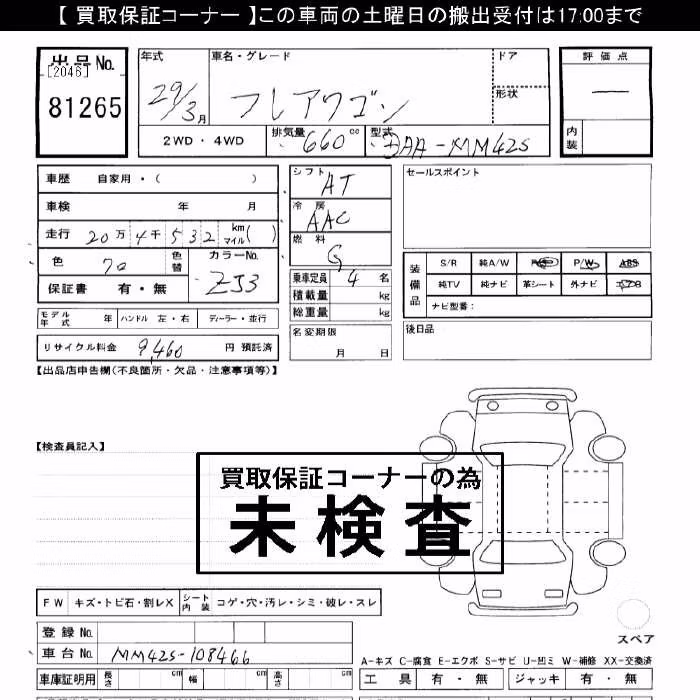 【 買取保証コーナー 】この車両の土曜日の搬出受付は17:00まで
出品No.
[2046]
81265
年式 29/3月
車名・グレード フレアワゴン
ドア
形状
評価点 —
内装
2WD・4WD
排気量 660cc
型式 DAA-MM42S
車歴 自家用・( )
車検 年 月
走行 20万4千532 km マイル( )
色 色替
カラーNo. ZJ3
保証書 有・無
シフト AT
冷房 AAC
燃料 G
乗車定員 4名
積載量 kg
総重量 kg
セールスポイント
装備品 S/R 純A/W P/S P/W ABS
純TV 純ナビ 革シート 外ナビ エアB
ナビ型番:
モデル年式 年 ハンドル 左・右 ディーラー・並行
名変期限 月 日
後日品
リサイクル料金 9,460 円 預託済
【出品店申告欄(不良箇所・欠品・注意事項等)】
【検査員記入】
買取保証コーナーの為
未検査
FW キズ・トビ石・割レX シート内装 コゲ・穴・汚レ・シミ・破レ・スレ
スペア
登録No.
車台No. MM42S-108466
A-キズ C-腐食 E-エクボ S-サビ U-凹ミ W-補修 XX-交換済
車庫証明用 長さ cm 幅 cm 高さ cm
工具 有・無 ジャッキ 有・無